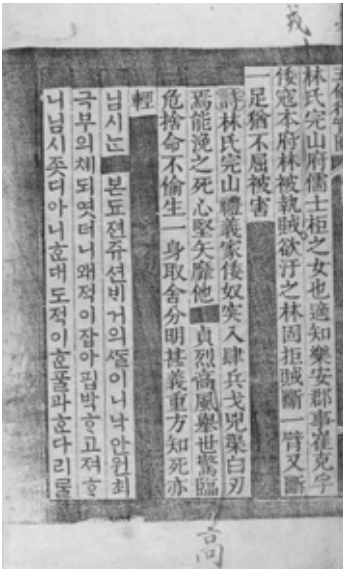 林氏完山府儒士柜之女也適知樂安郡事崔克孚
後寇本府林被執賊欲汙之林固拒賊斷一臂又斷
一足猶不屈被害
詩林氏完山禮義家倭奴突入肆兵戈兇渠白刃
焉能浼之死心堅矢靡他 貞烈高風舉世驚臨
危捨命不偷生一身取舍分明甚義重方知死亦
輕
님시ᄂᆞᆫ 본됴젼쥬션ᄇᆡ거의ᄯᆞᆯ이니낙안원최
극부의쳬되엿더니왜적이잡아핍박ᄒᆞ고져ᄒᆞ
니님시좃디아니ᄒᆞᆫ대도적이ᄒᆞᆫᄑᆞᆯ과ᄒᆞᆫ다리ᄅᆞᆯ
高